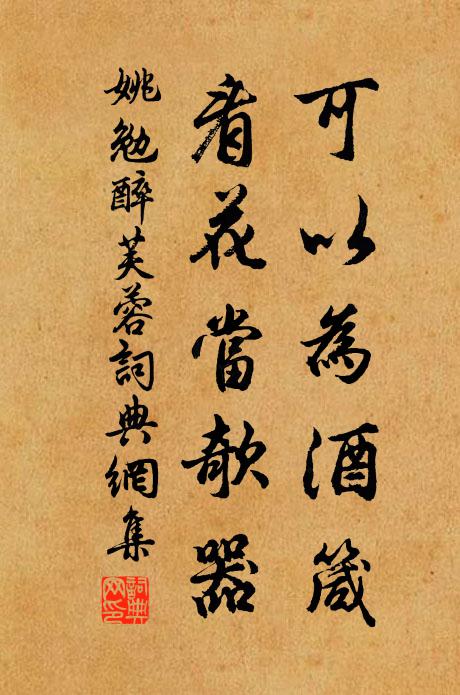 可以為酒箴
看花當欹器
姚勉醉芙蓉詞典網集
詞典网印